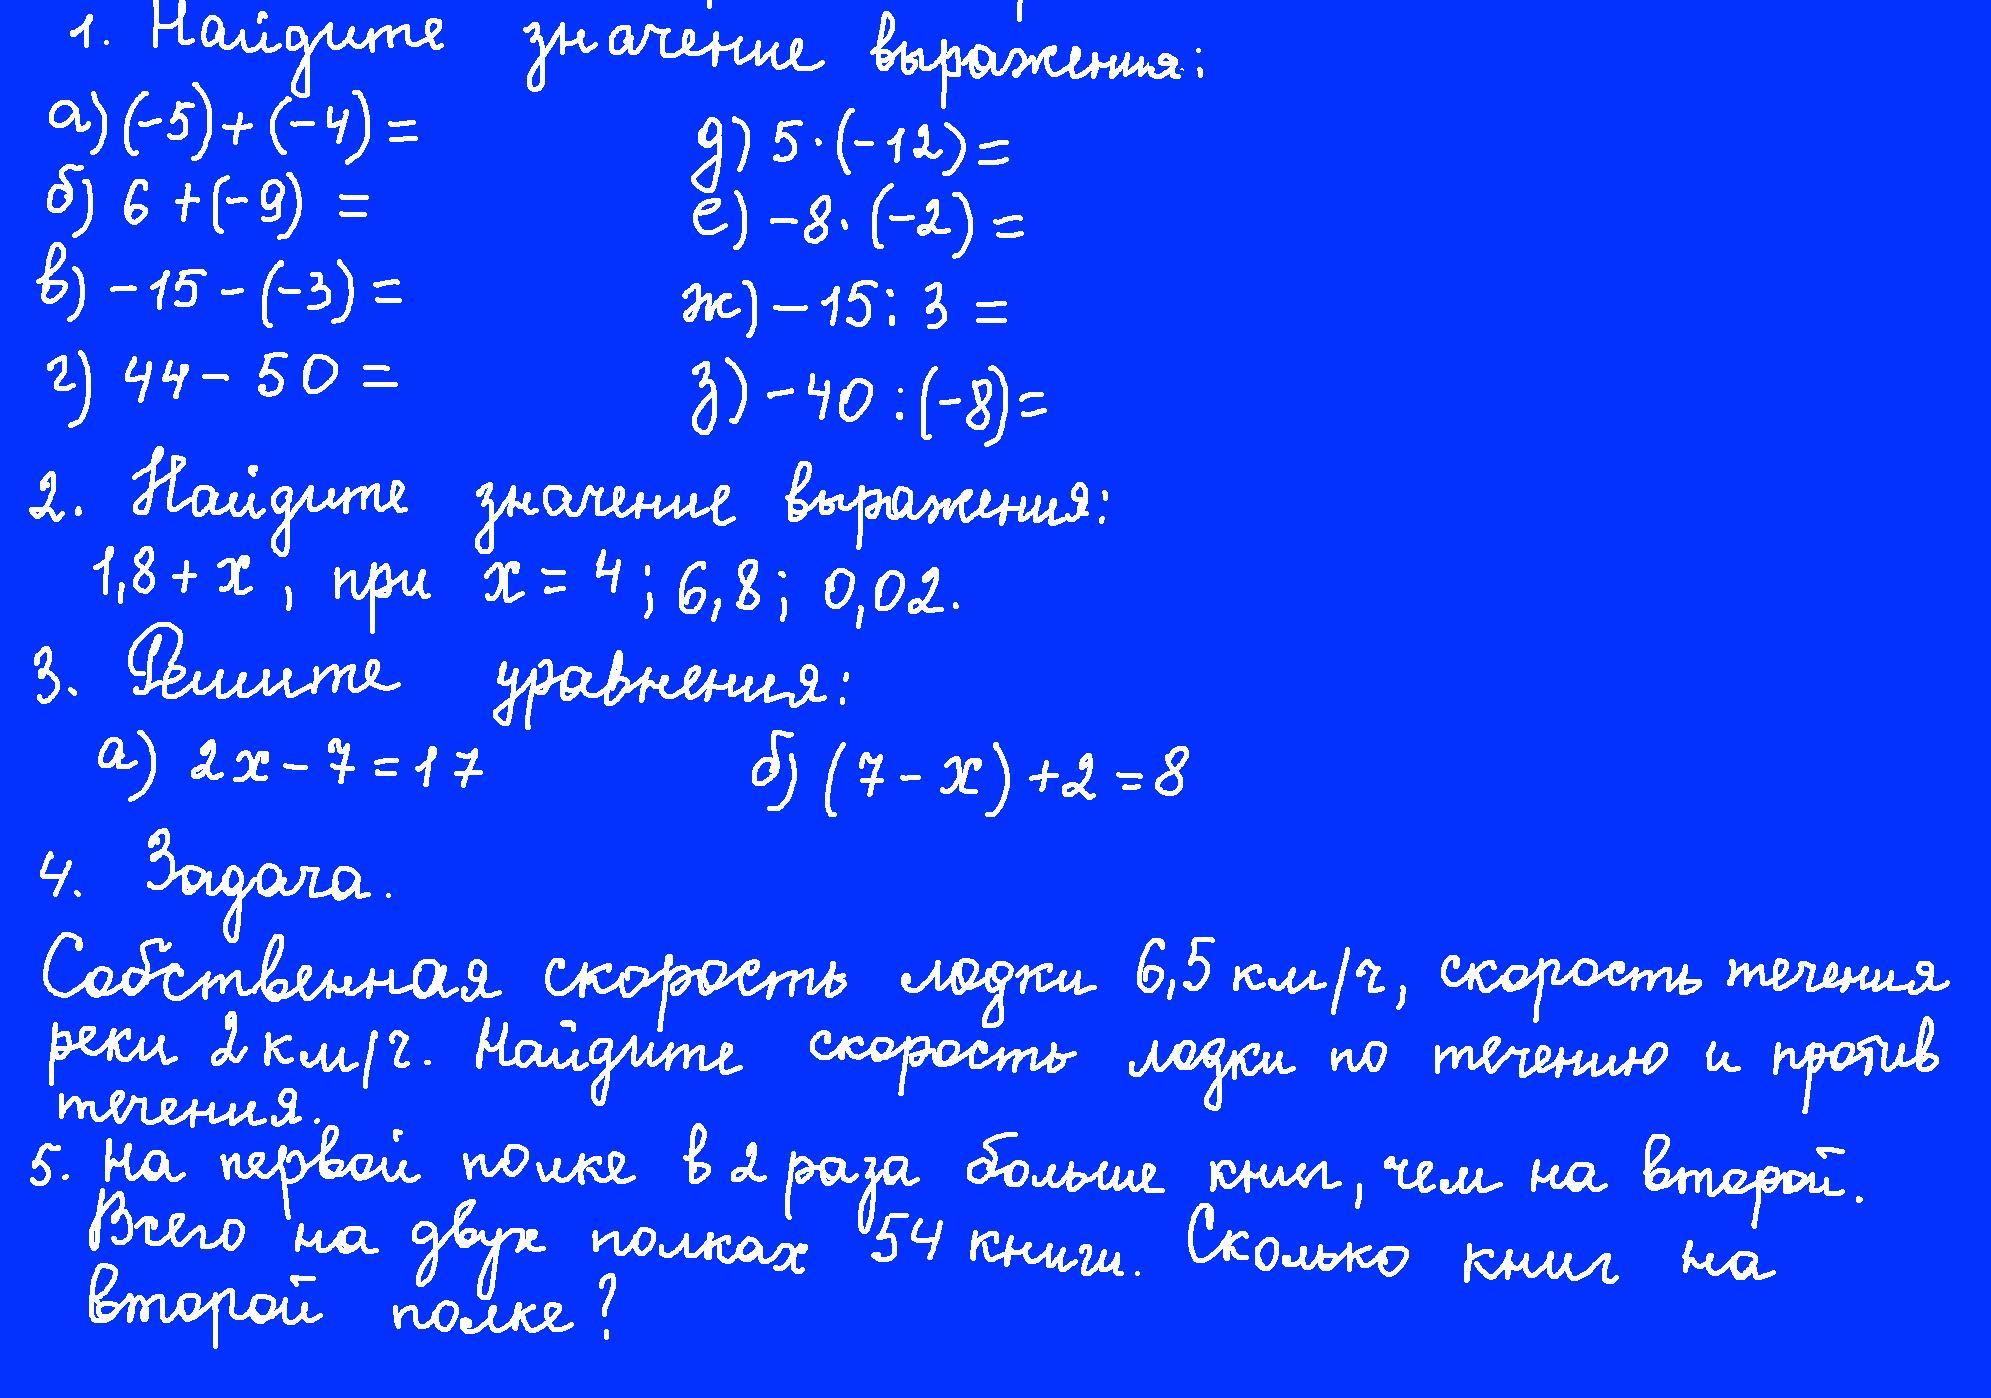 1. Найдите значение выражения:
а) (-5)+(-4)=
д) 5·(-12)=
б) 6+(-9) =
е) -8·(-2)=
в) -15-(-3)=
ж) -15:3 =
г) 44-50=
з) -40:(-8)=
2. Найдите значение выражения:
1,8+x, при x=4; 6,8; 0,02.
3. Решите уравнения:
а) 2x-7=17
б) (7-x)+2=8
4. Задача.
Собственная скорость лодки 6,5 км/ч, скорость течения
реки 2 км/ч. Найдите скорость лодки по течению и против
течения.
5. На первой полке в 2 раза больше книг, чем на второй.
Всего на двух полках 54 книги. Сколько книг на
второй полке?